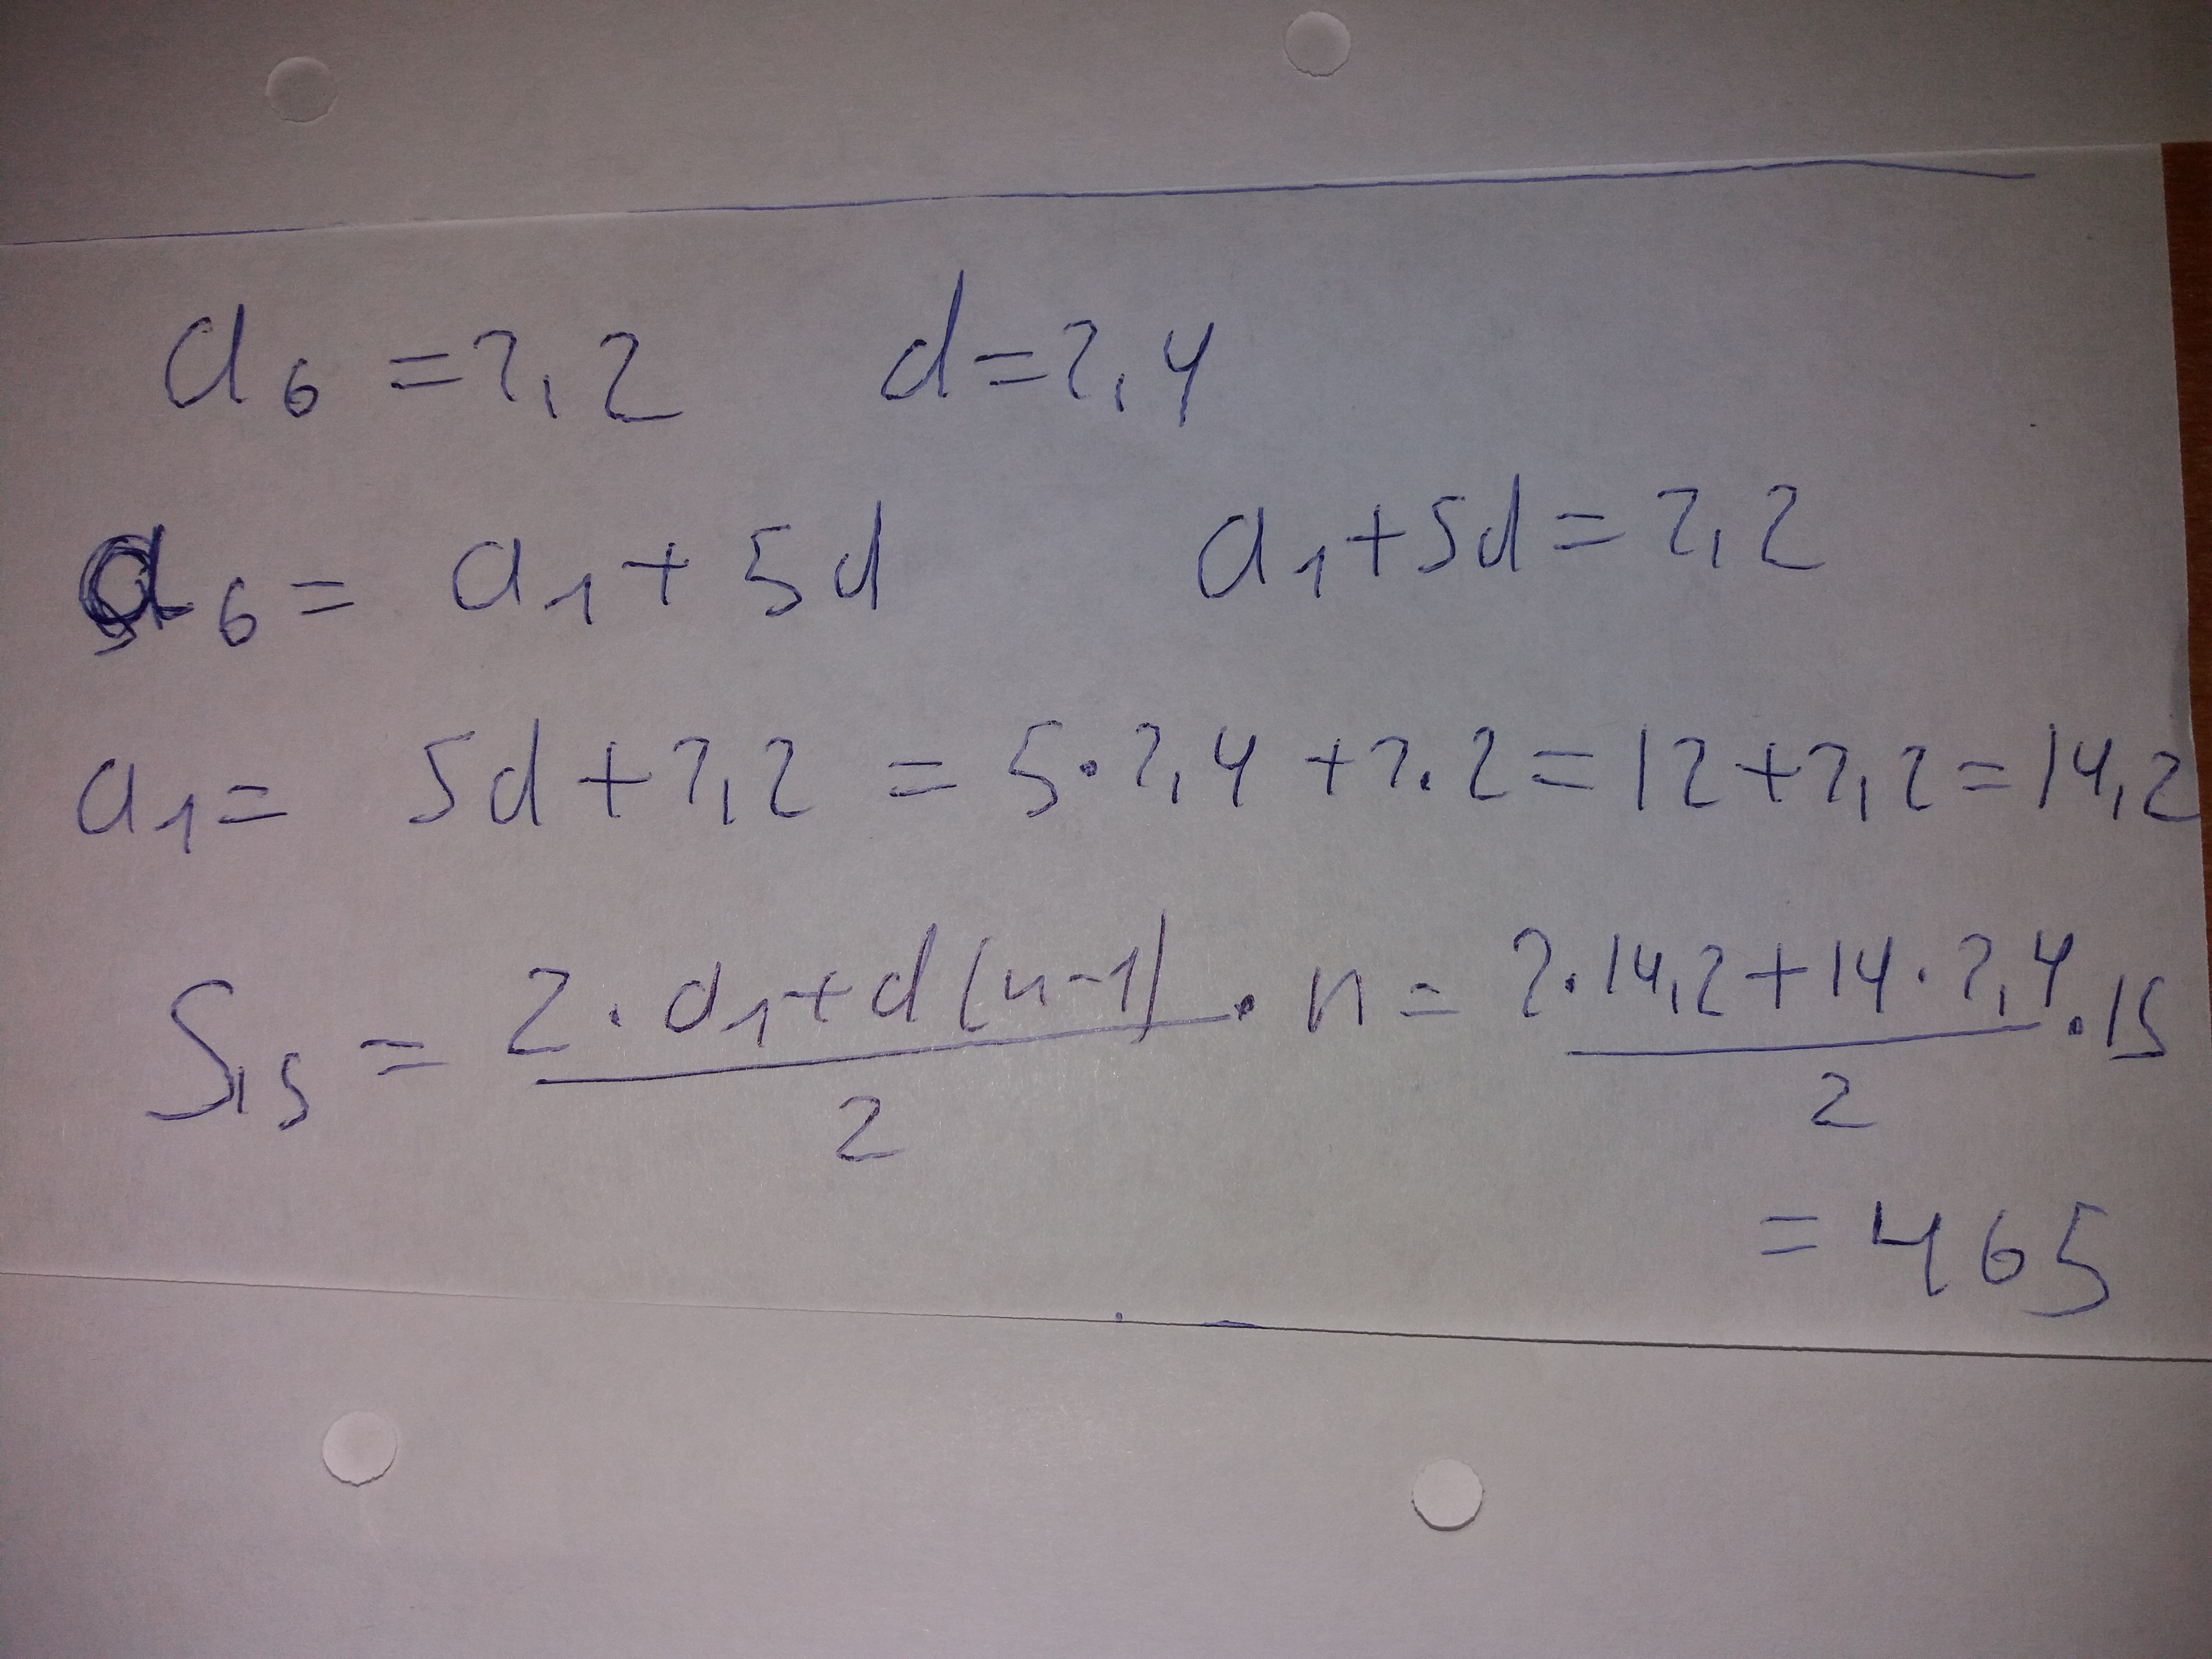 a₆ = 2,2 d = 2,4
a₆ = a₁ + 5d a₁ + 5d = 2,2
a₁ = 5d + 2,2 = 5·2,4 + 2.2 = 12 + 2,2 = 14,2
S₁₅ = (2·a₁ + d(n-1))/2 · n = (2·14,2 + 14·2,4)/2 ·15
= 465